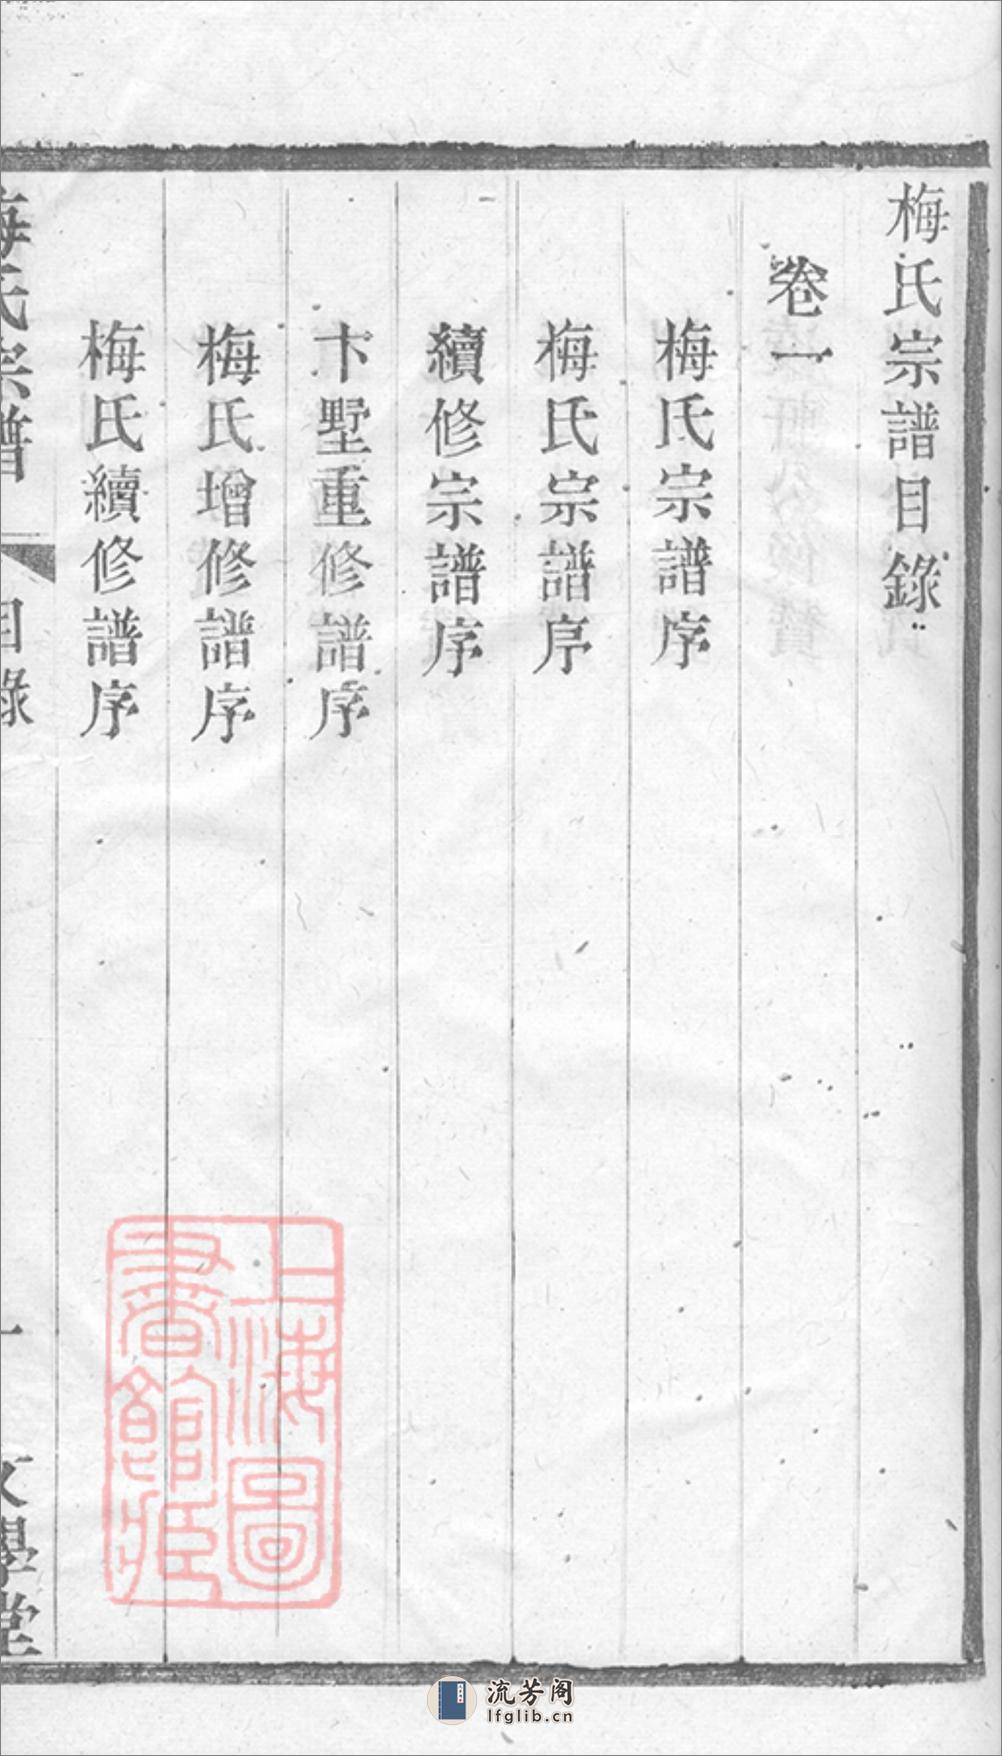 梅氏宗譜目錄
卷一
梅氏宗譜序
梅氏宗譜序
續修宗譜序
卞墅重修譜序
梅氏增修譜序
梅氏續修譜序
梅氏宗譜
目錄
一
文學堂
上海圖
書館藏
流芳阁
lfglib.cn